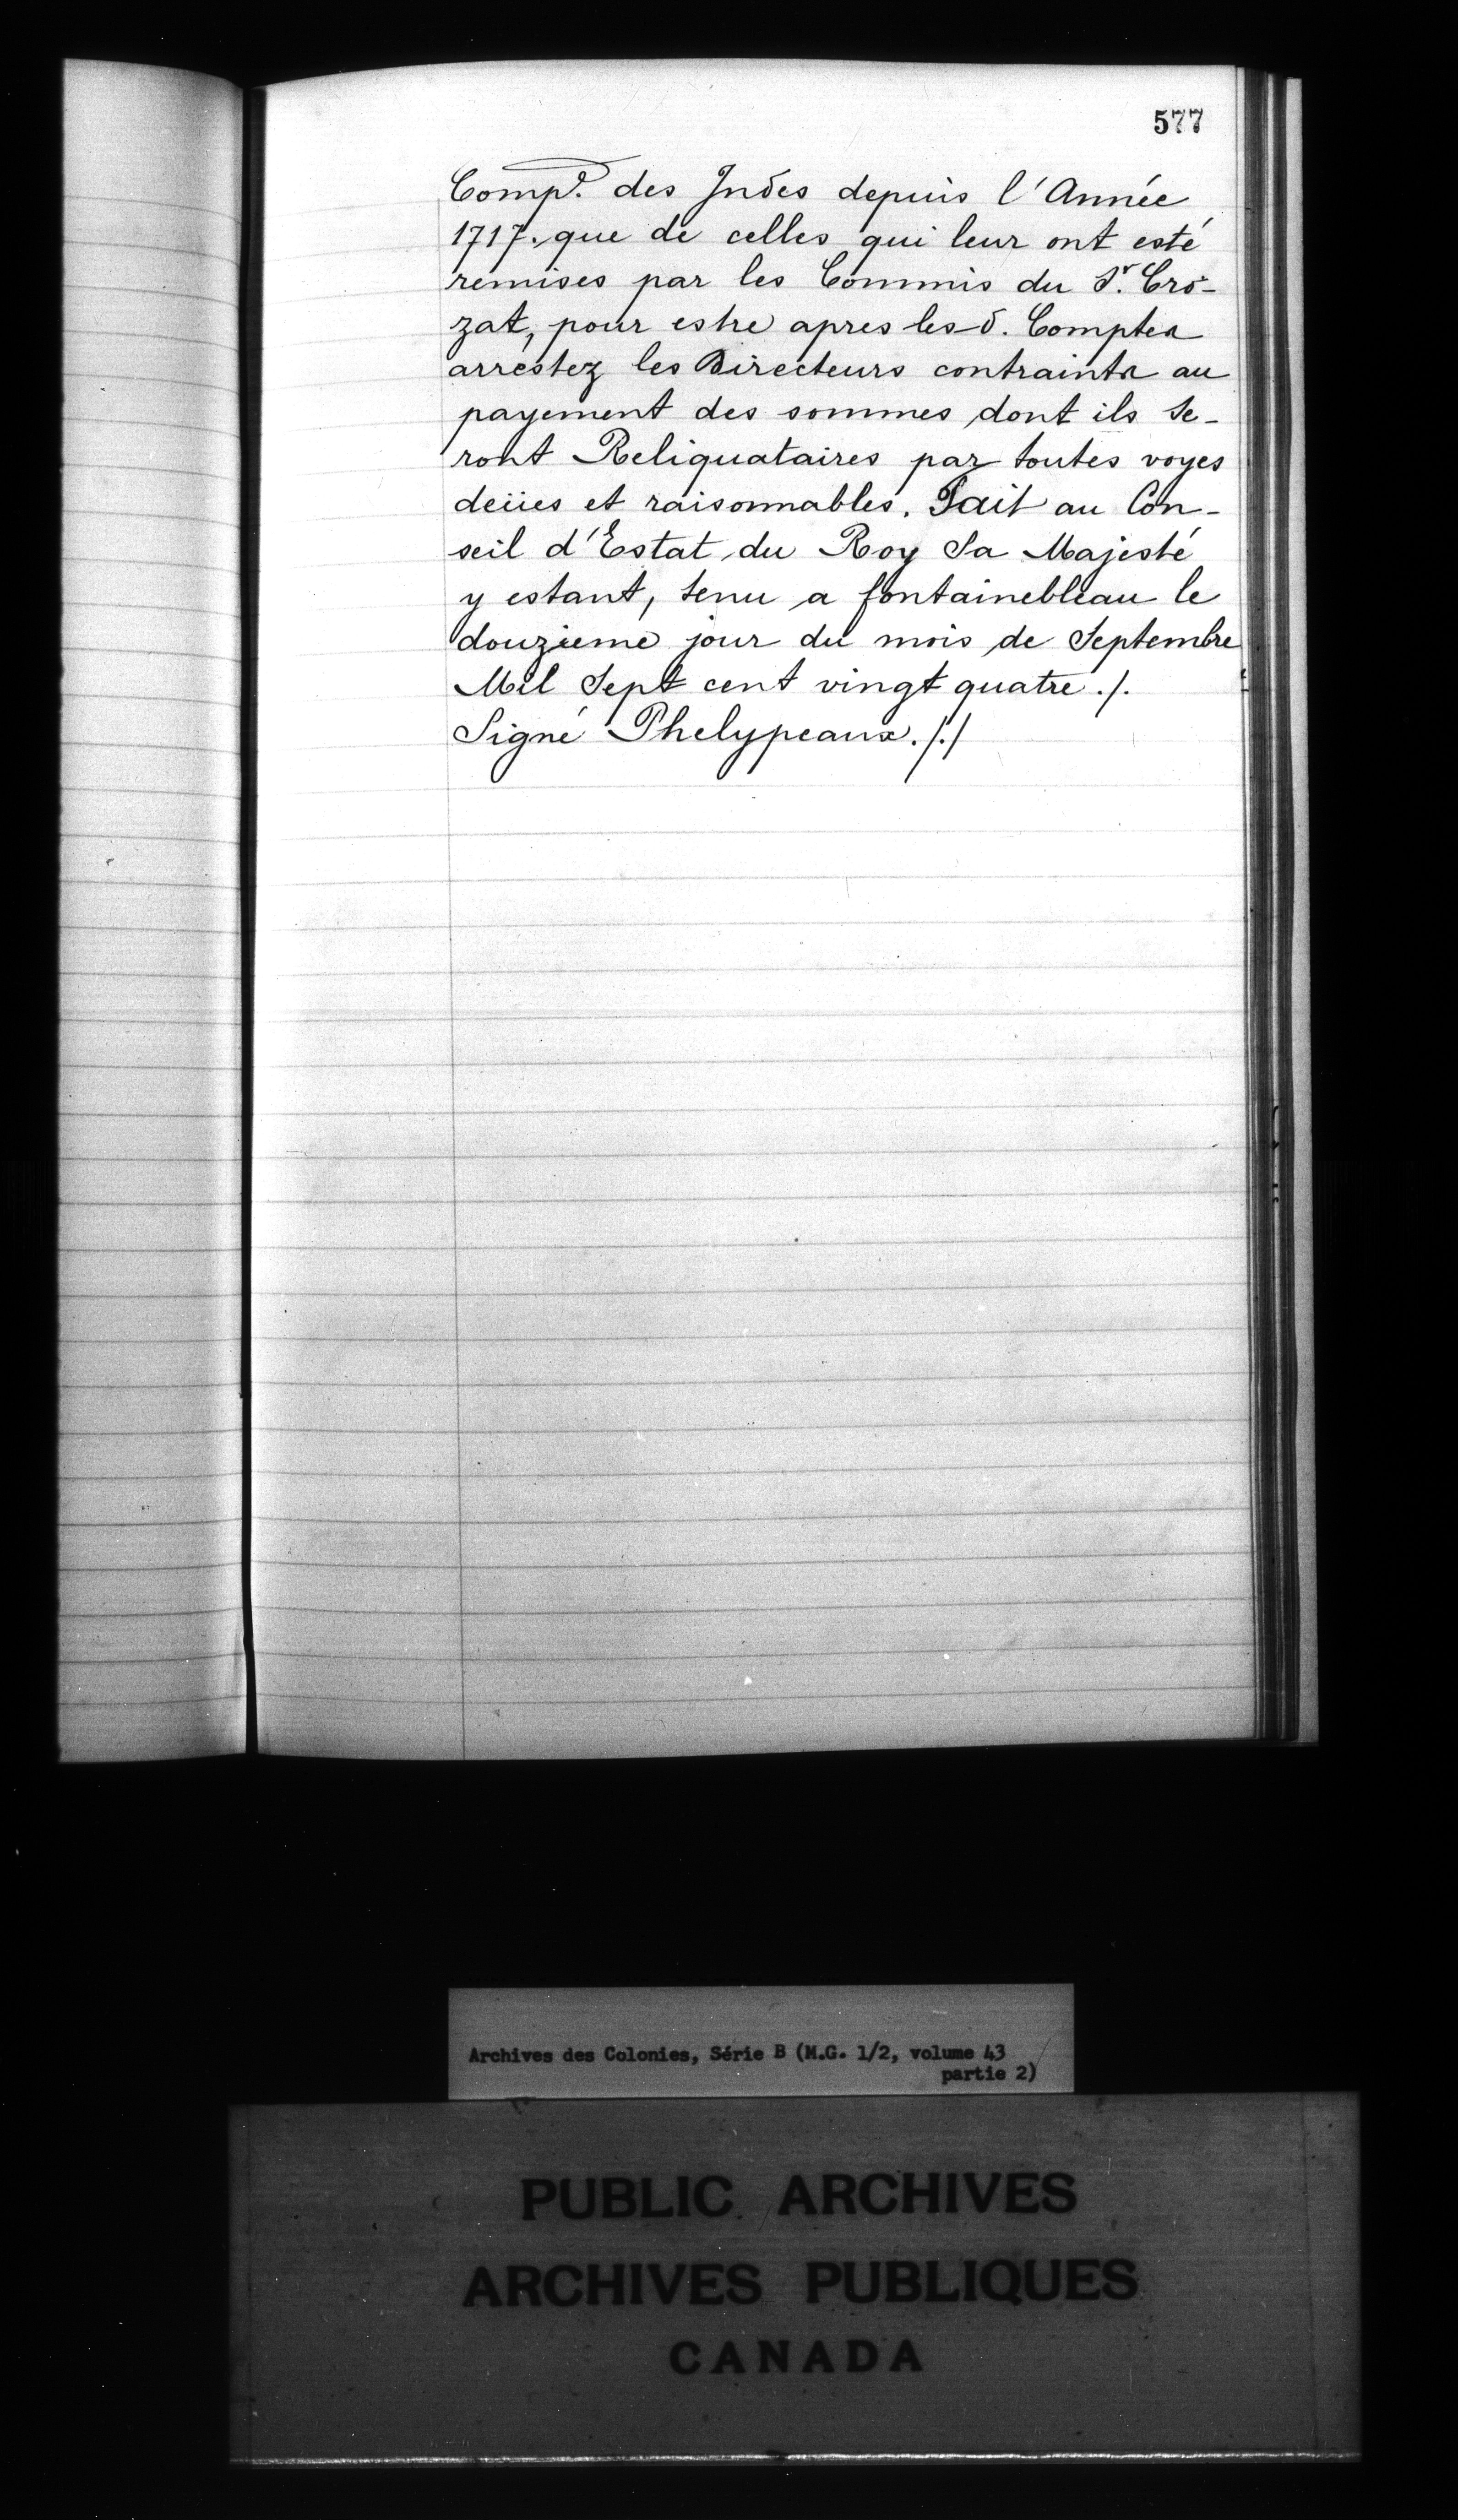 577
Comp.e des Indes depuis l'Année
1717. que de celles qui leur ont esté
remises par les Commis du Sr. Cro-
zat, pour estre apres les d. Comptes
arrestez les Directeurs contraints au
payement des sommes dont ils se-
ront Reliquataires par toutes voyes
deües et raisonnables. Fait au Con-
seil d'Estat du Roy Sa Majesté
y estant, tenu a fontainebleau le
douzieme jour du mois de Septembre
Mil Sept cent vingt quatre ./.
Signé Phelypeaux ././
Archives des Colonies, Série B (M.G. 1/2, volume 43
partie 2)
PUBLIC ARCHIVES
ARCHIVES PUBLIQUES
CANADA